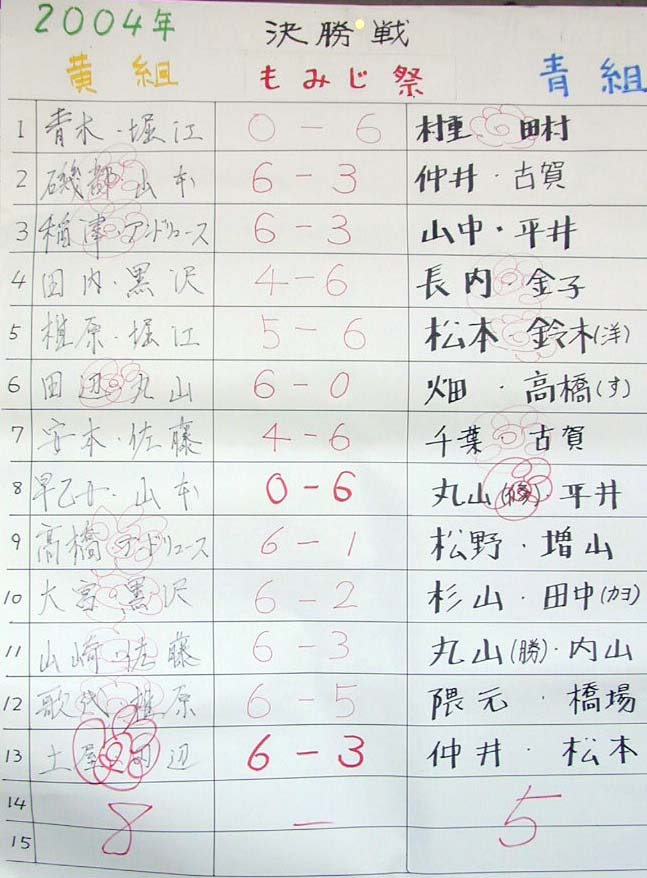 2004年 決勝戦
黄組 もみじ祭 青組
1 青木・堀江 0-6 村重 田村
2 磯部 山本 6-3 仲井・古賀
3 稲津・アンドリュース 6-3 山中・平井
4 田内・黒沢 4-6 長内・金子
5 植原・堀江 5-6 松本 鈴木(洋)
6 田辺 丸山 6-0 畑・高橋(す)
7 安本・佐藤 4-6 千葉 古賀
8 早乙女・山本 0-6 丸山 ・平井
9 高橋 アンドリュース 6-1 松野・増山
10 大宮 黒沢 6-2 杉山・田中(カヨ)
11 山崎 佐藤 6-3 丸山(勝)・内山
12 歌代 植原 6-5 隈元・橋場
13 土屋 田辺 6-3 仲井・松本
14
8 - 5
15